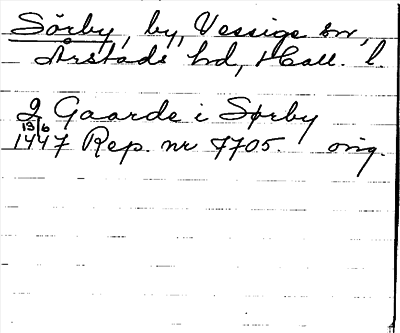 Sörby, by, Vessige sn,
Årstads hd, Hall. l.
2 Gaarde i Sørby
13/6
1447 Rep. nr 7705. orig.